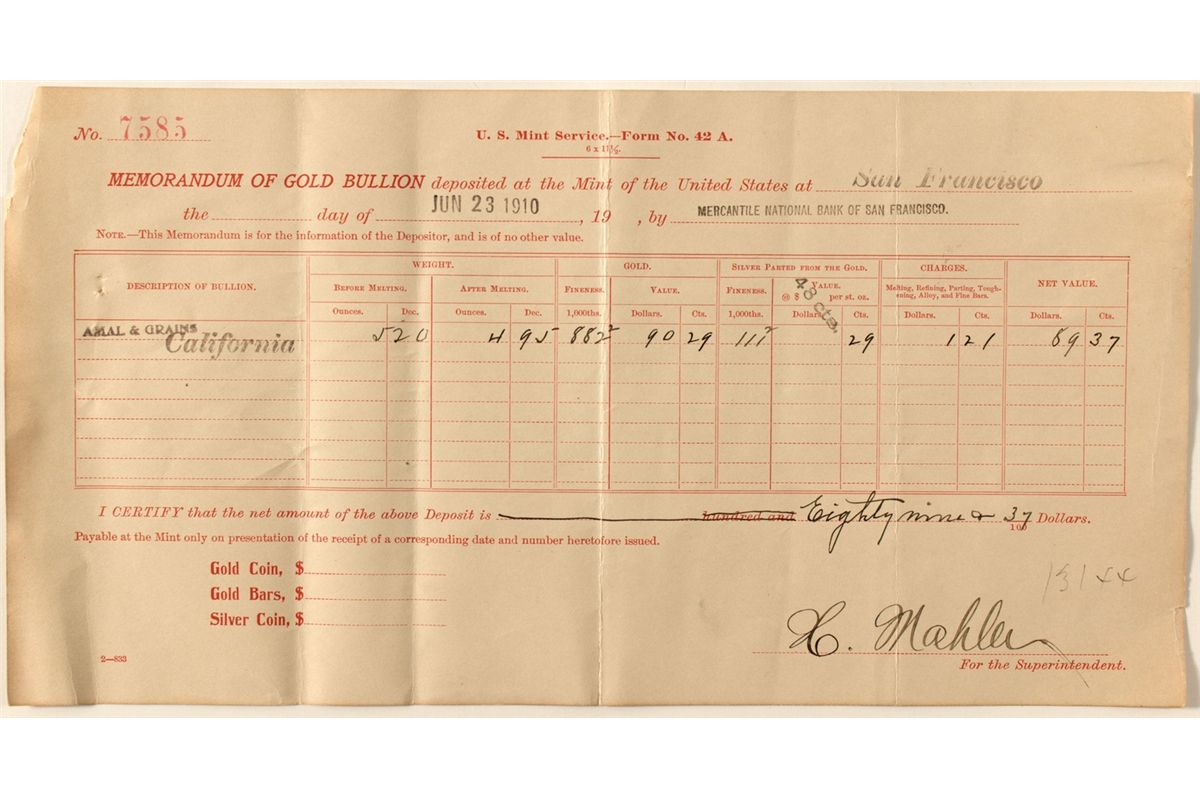 No. 7585
U. S. Mint Service.—Form No. 42 A.
6 x 11½.
MEMORANDUM OF GOLD BULLION deposited at the Mint of the United States at San Francisco
the day of JUN 23 1910, 19 , by MERCANTILE NATIONAL BANK OF SAN FRANCISCO.
NOTE.—This Memorandum is for the information of the Depositor, and is of no other value.
DESCRIPTION OF BULLION. WEIGHT. GOLD. SILVER PARTED FROM THE GOLD. CHARGES. NET VALUE.
BEFORE MELTING. AFTER MELTING. FINENESS. VALUE. FINENESS. VALUE. Melting, Refining, Parting, Tough-
@ $ 48 cts. per st. oz. ening, Alloy, and Fine Bars.
Ounces. Dec. Ounces. Dec. 1,000ths. Dollars. Cts. 1,000ths. Dollars. Cts. Dollars. Cts. Dollars. Cts.
AMAL & GRAINS
California 5 20 4 95 882 2 90 29 111 2 29 1 21 89 37
I CERTIFY that the net amount of the above Deposit is hundred and Eighty nine & 37/100 Dollars.
Payable at the Mint only on presentation of the receipt of a corresponding date and number heretofore issued.
Gold Coin, $
Gold Bars, $
Silver Coin, $
13144
H. Mahler
For the Superintendent.
2—833